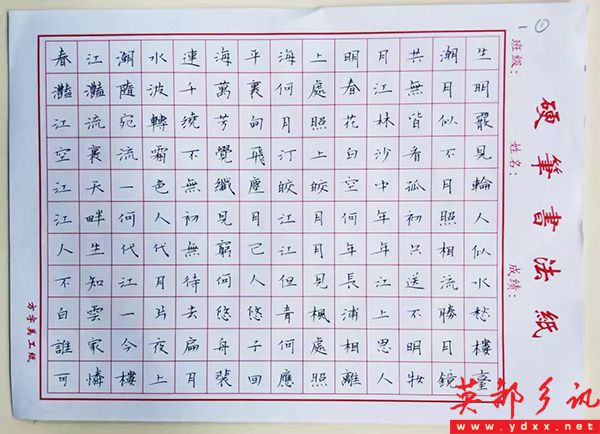 一 ①
班级：
姓名：
成绩：
硬筆書法紙
春江潮水連海平海上明月共潮生
灩灩隨波千萬裏何處春江無月明
江流宛轉繞芳甸月照花林皆似霰
空裏流霜不覺飛汀上白沙看不見
江天一色無纖塵皎皎空中孤月輪
江畔何人初見月江月何年初照人
人生代代無窮已江月年年只相似
不知江月待何人但見長江送流水
白雲一片去悠悠青楓浦上不勝愁
誰家今夜扁舟子何處相思明月樓
可憐樓上月裴回應照離人妝鏡臺
方字美工紙
英都乡讯
www.ydxx.net